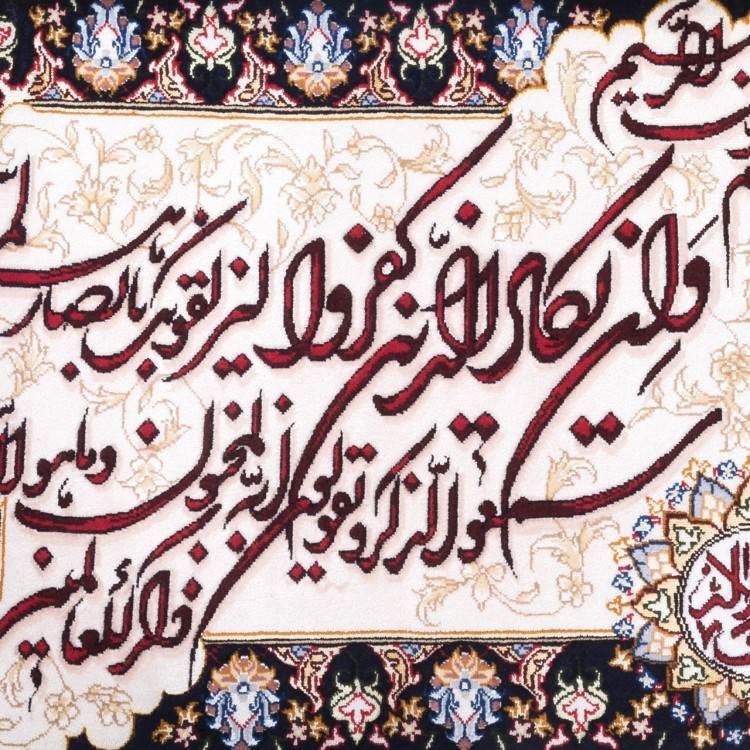 الرحیم
وان یکاد الذین کفروا لیزلقونک بابصارهم لما
سمعوا الذکر و یقولون انه لمجنون وما هو الا
ذکر للعالمین